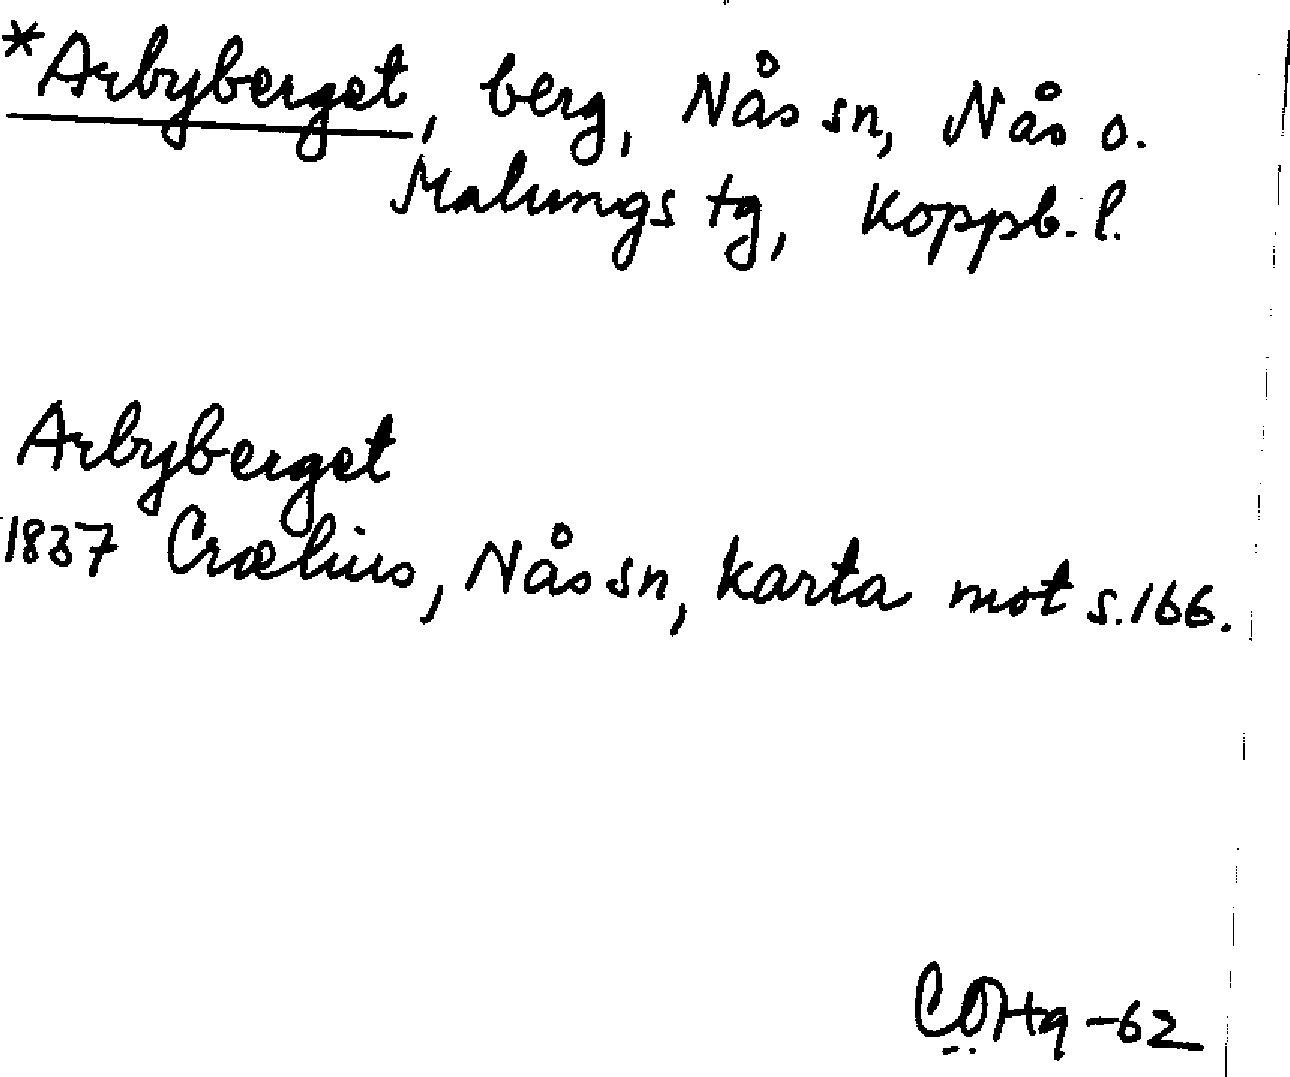 *Arbyberget, berg, Nås sn, Nås o.
Malungs tg, Koppb. l.
Arbyberget
1837 Crælius, Nås sn, karta mot s. 166.
-62